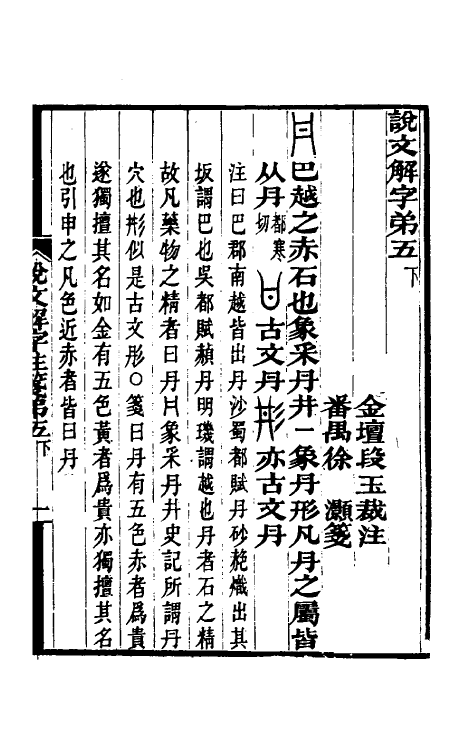 說文解字弟五下
金壇段玉裁注
番禺徐灝箋
巴越之赤石也象采丹井一象丹形凡丹之屬皆
从丹都寒切 古文丹 亦古文丹
注曰巴郡南越皆出丹沙蜀都賦丹砂赩熾出其
坂謂巴也吳都賦赬丹明璣謂越也丹者石之精
故凡藥物之精者曰丹 象采丹井史記所謂丹
穴也 形似是古文彤○箋曰丹有五色赤者爲貴
遂獨擅其名如金有五色黃者爲貴亦獨擅其名
也引申之凡色近赤者皆曰丹
說文解字注箋弟五下
一